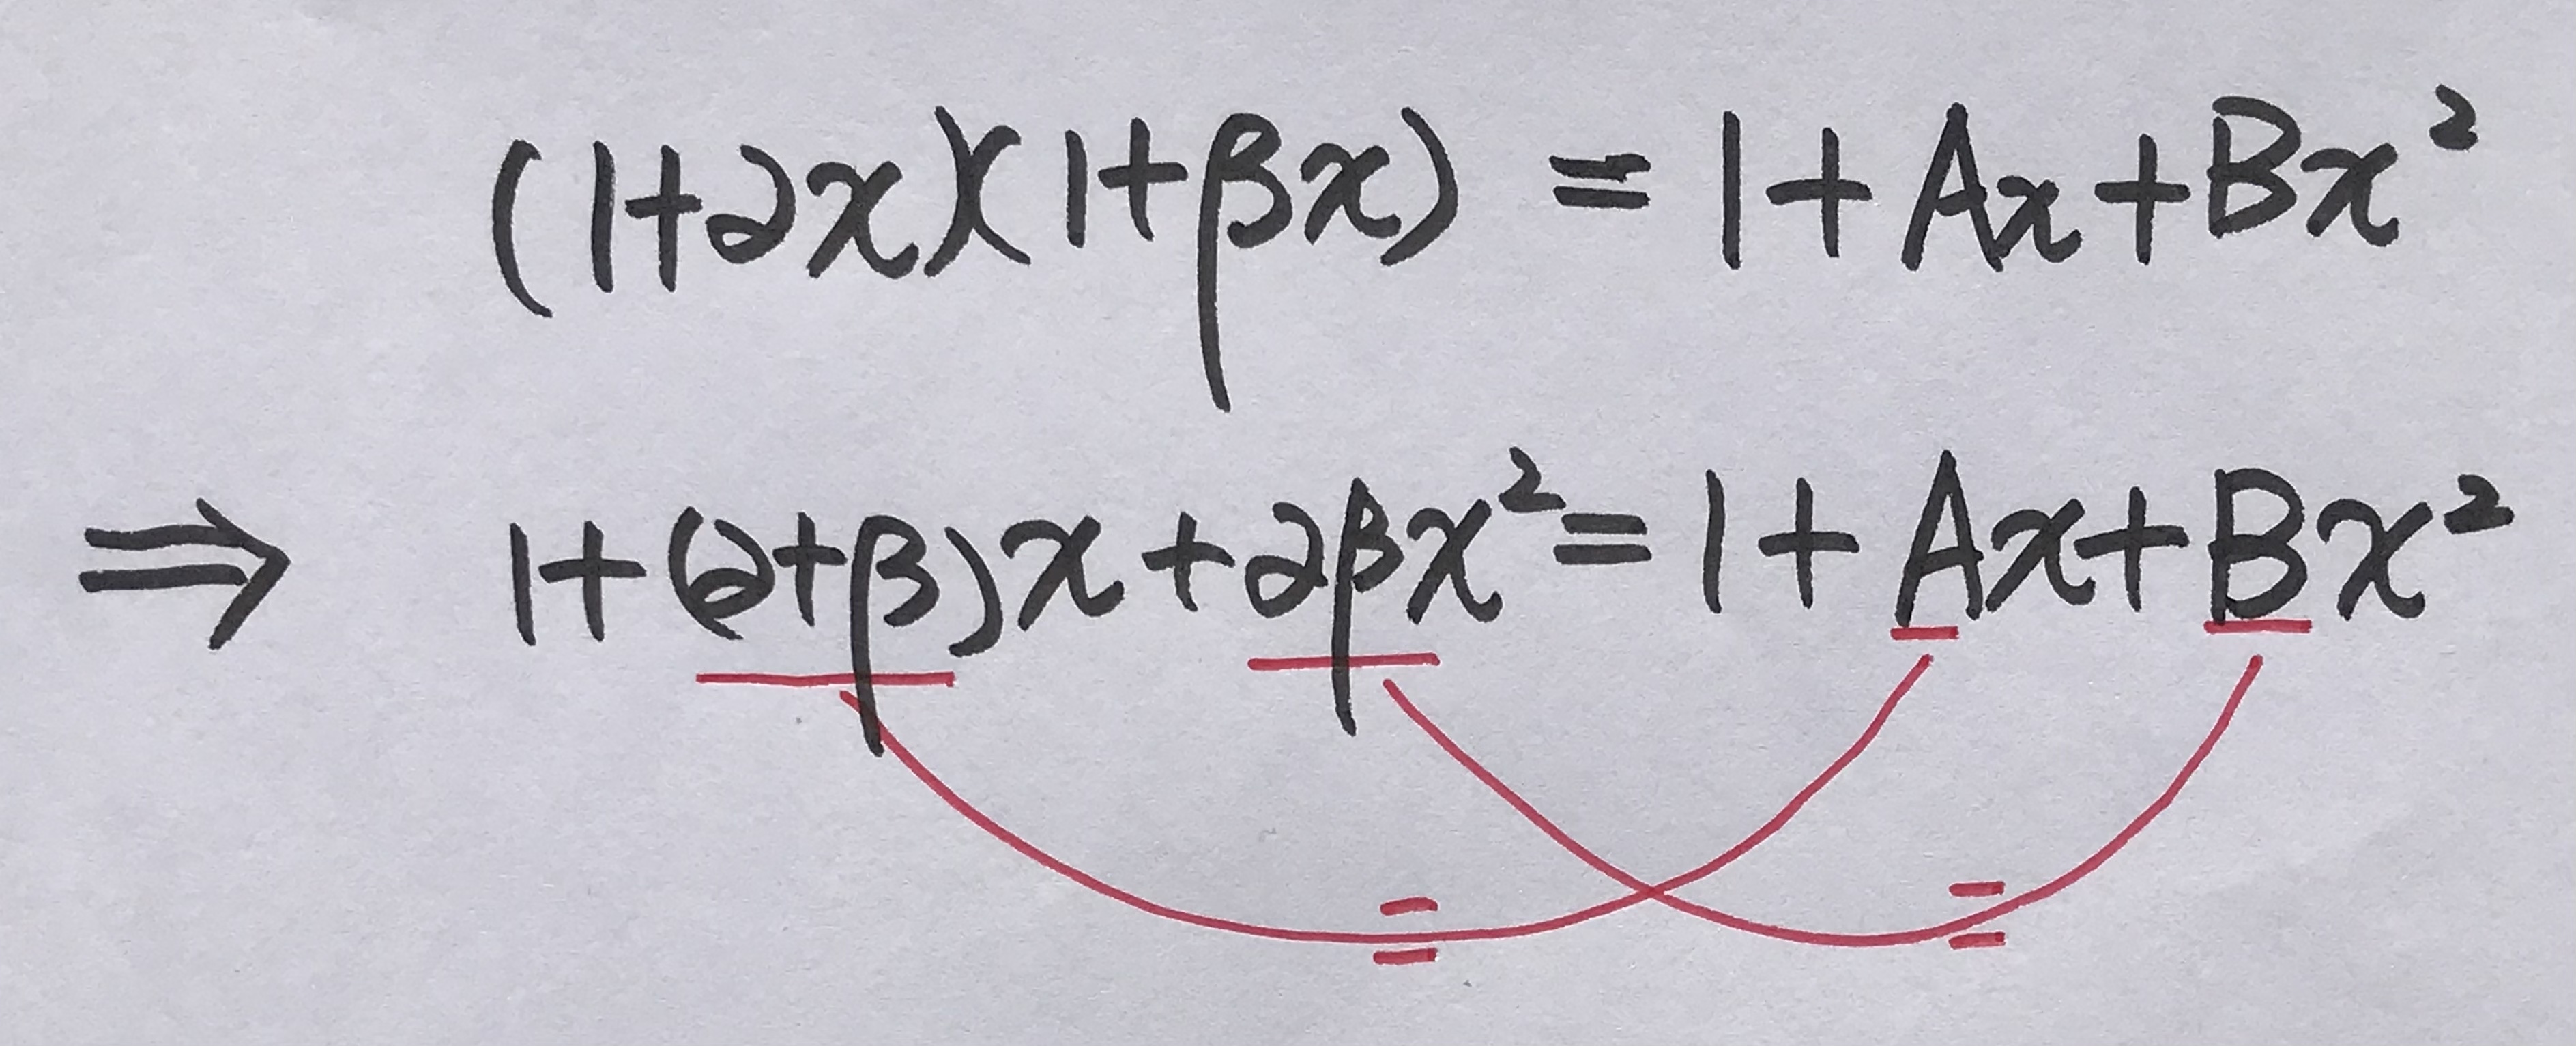 (1+∂x)(1+βx) = 1+Ax+Bx²
⇒ 1+(∂+β)x+∂βx²=1+Ax+Bx²
= =